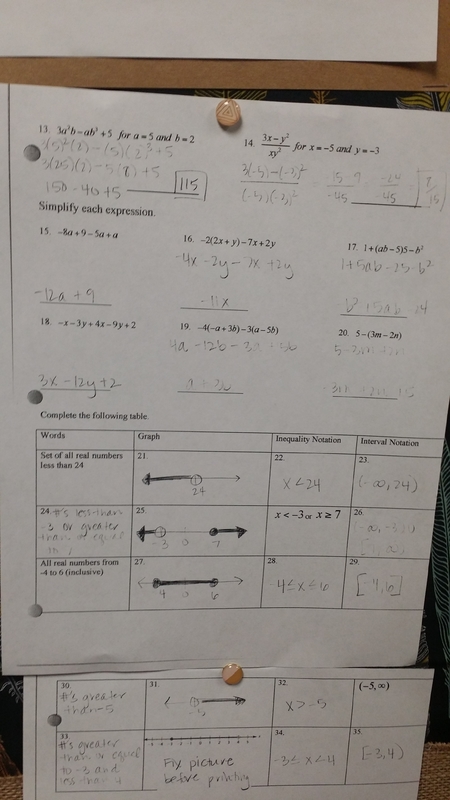 13. 3a²b – ab³ + 5 for a = 5 and b = 2
3(5)²(2) – (5)(2)³ + 5
3(25)(2) – 5(8) + 5
150 – 40 + 5
115
14. 3x – y² / xy² for x = –5 and y = –3
Simplify each expression.
15. –8a + 9 – 5a + a
–12a + 9
16. –2(2x + y) – 7x + 2y
–4x – 2y – 7x + 2y
–11x
17. 1 + (ab – 5)5 – b²
1 + 5ab – 25 – b²
18. –x – 3y + 4x – 9y + 2
3x – 12y + 2
19. –4(–a + 3b) – 3(a – 5b)
4a – 12b – 3a
20. 5 – (3m – 2n)
Complete the following table.
Words Graph Inequality Notation Interval Notation
Set of all real numbers
less than 24
21.
24
22.
x < 24
23.
(-∞, 24)
24. #'s less than
-3 or greater
than or equal
to
25.
-3 0 7
x < –3 or x ≥ 7
26.
All real numbers from
-4 to 6 (inclusive)
27.
4 0 6
28.
-4 ≤ x ≤ 6
29.
[-4, 6]
30.
#'s greater
than -5
31.
-5
32.
x > -5
(–5, ∞)
33.
#'s greater
than or equal
to -3 and
less than 4
Fix picture
before printing
34.
-3 ≤ x < 4
35.
[-3, 4)